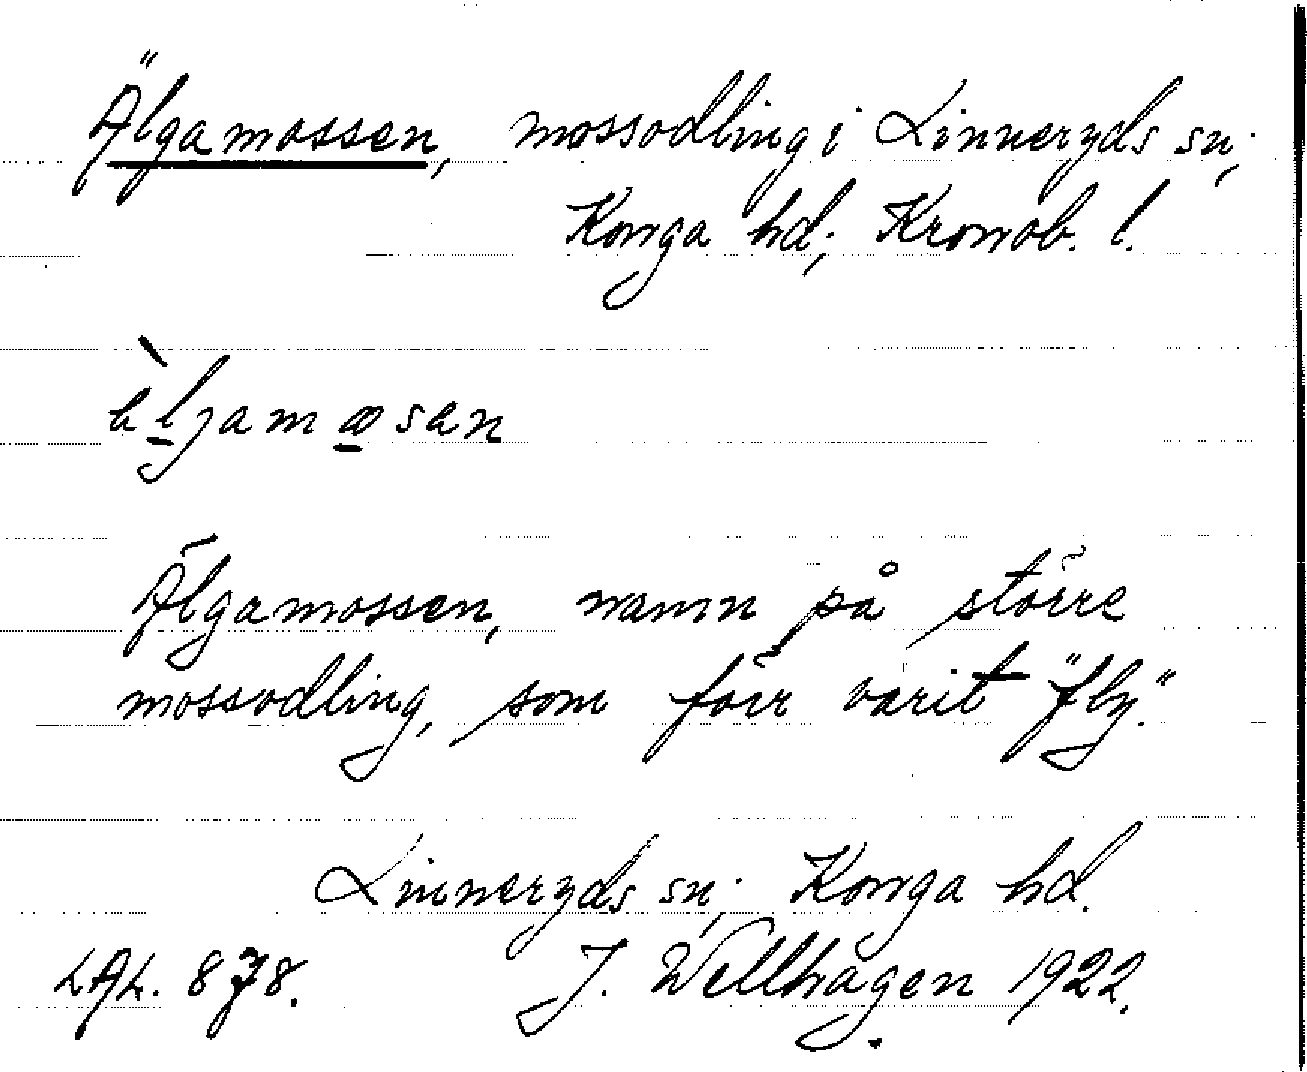 Älgamossen, mossodling i Linneryds sn;
Konga hd; Kronob. l.
Älgamossen, namn på större
mossodling, som förr varit "fly."
Linneryds sn; Konga hd.
LAL. 878. J. Wellhagen 1922.